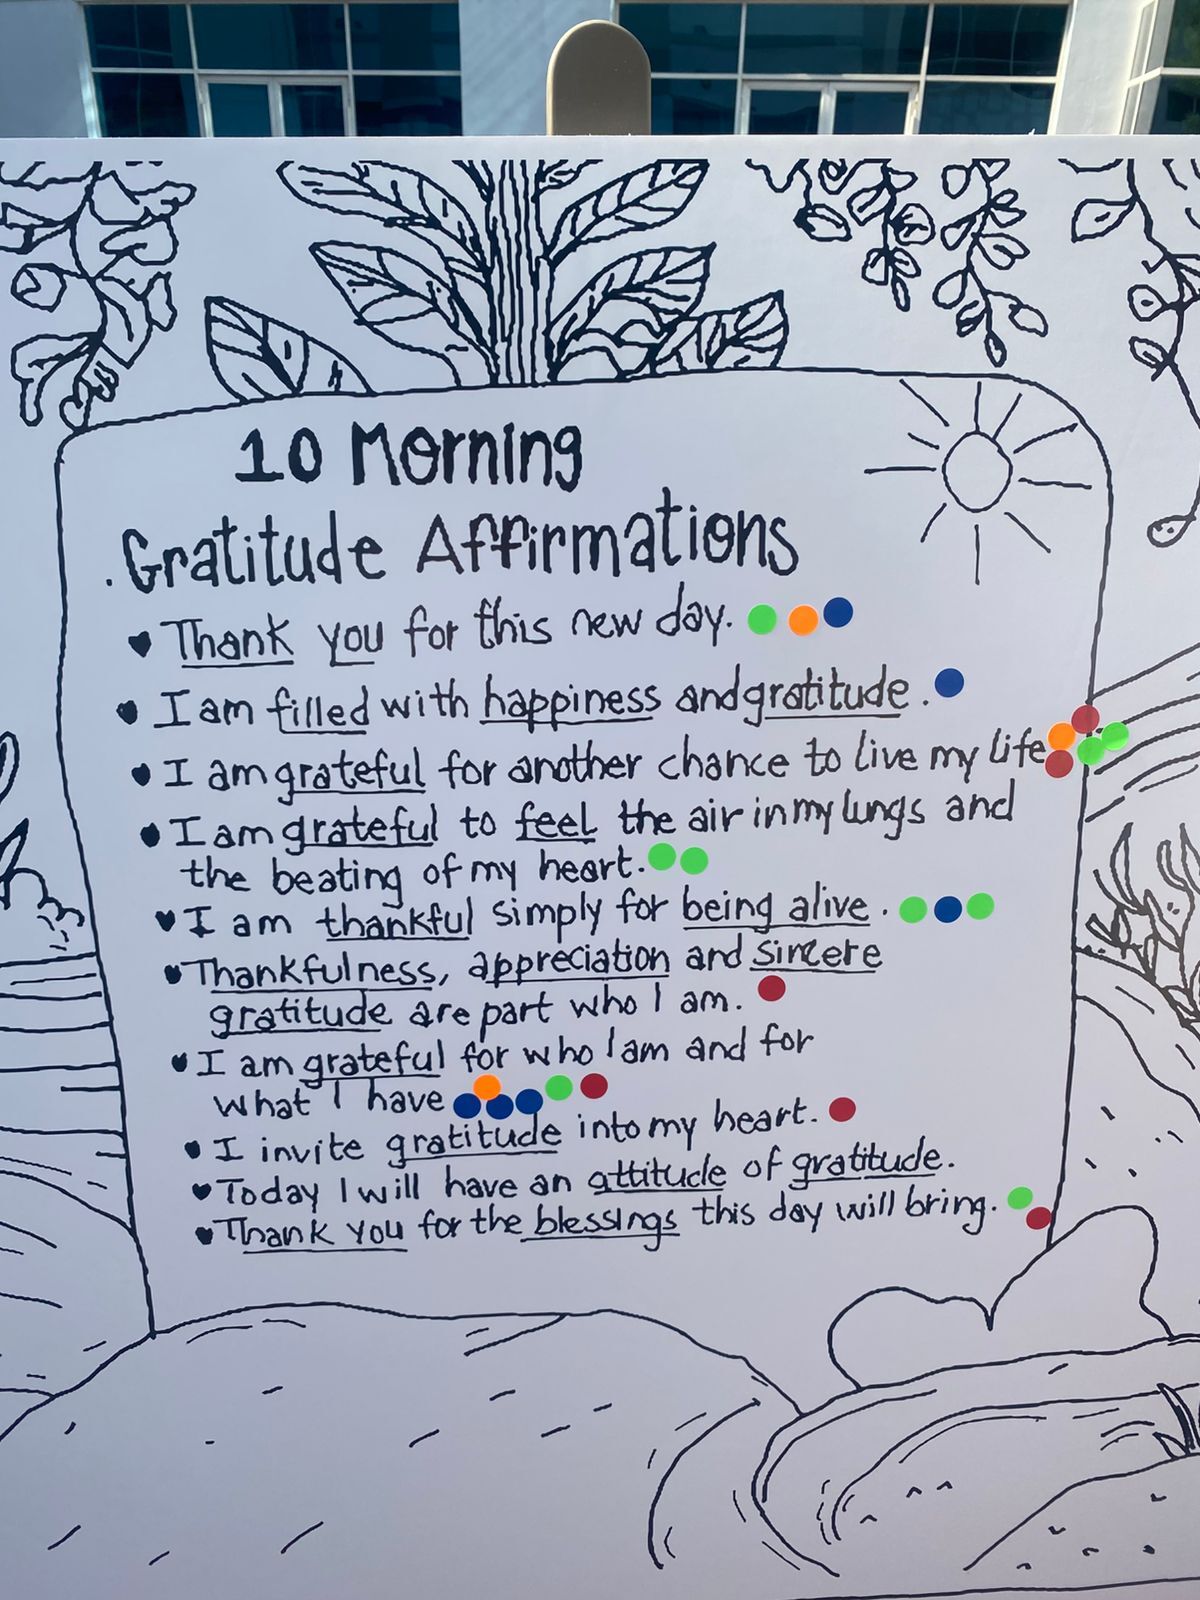 10 Morning
Gratitude Affirmations
Thank you for this new day.
I am filled with happiness and gratitude.
I am grateful for another chance to live my life
I am grateful to feel the air in my lungs and
the beating of my heart.
I am thankful simply for being alive.
Thankfulness, appreciation and sincere
gratitude are part who I am.
I am grateful for who I am and for
what I have
I invite gratitude into my heart.
Today I will have an attitude of gratitude.
Thank you for the blessings this day will bring.